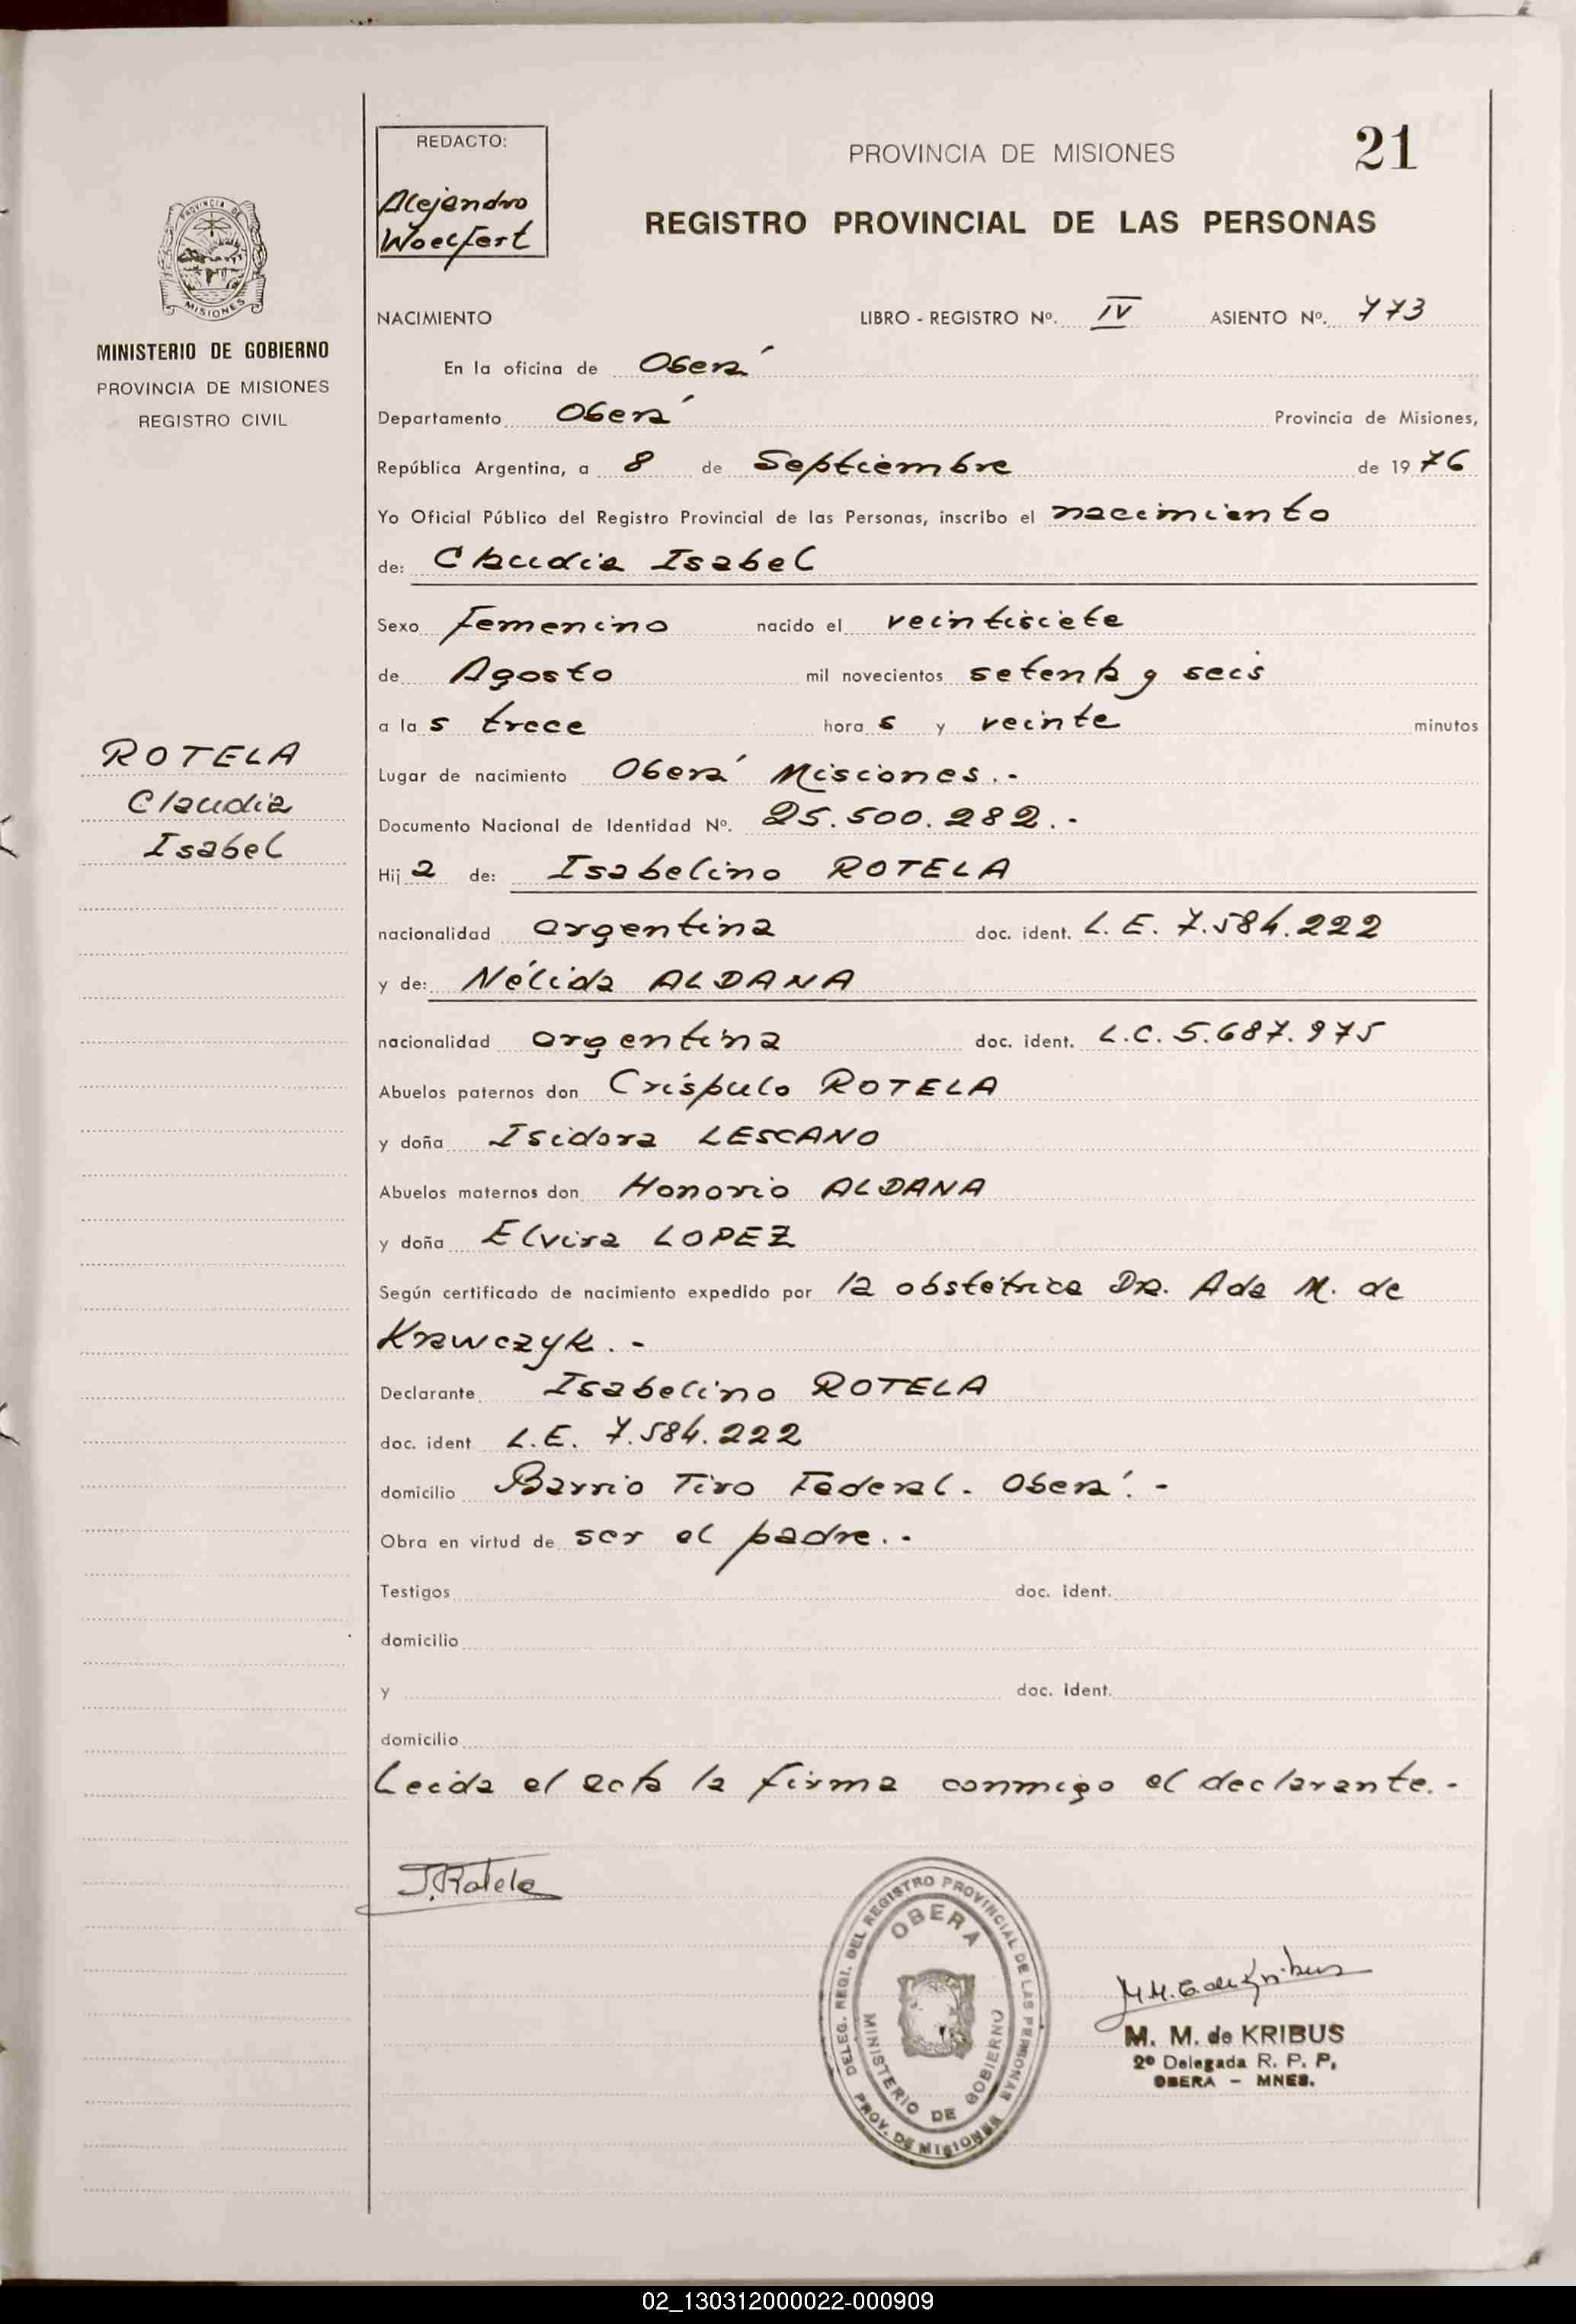 REDACTO:
Alejandro
Woelfert
PROVINCIA DE MISIONES
21
REGISTRO PROVINCIAL DE LAS PERSONAS
PROVINCIA DE
MISIONES
MINISTERIO DE GOBIERNO
PROVINCIA DE MISIONES
REGISTRO CIVIL
NACIMIENTO LIBRO - REGISTRO Nº. IV ASIENTO Nº. 773
En la oficina de Oberá
Departamento Oberá Provincia de Misiones,
República Argentina, a 8 de Septiembre de 1976
Yo Oficial Público del Registro Provincial de las Personas, inscribo el nacimiento
de: Claudia Isabel
Sexo Femenino nacido el veintisiete
de Agosto mil novecientos setenta y seis
a las trece horas y veinte minutos
ROTELA
Claudia
Isabel
Lugar de nacimiento Oberá Misiones.-
Documento Nacional de Identidad Nº. 25.500.282.-
Hija de: Isabelino ROTELA
nacionalidad argentina doc. ident. L.E. 7.584.222
y de: Nélida ALDANA
nacionalidad argentina doc. ident. L.C. 5.687.975
Abuelos paternos don Críspulo ROTELA
y doña Isidora LESCANO
Abuelos maternos don Honorio ALDANA
y doña Elvira LOPEZ
Según certificado de nacimiento expedido por la obstétrica Dra. Ada M. de
Krawczyk.-
Declarante Isabelino ROTELA
doc. ident L.E. 7.584.222
domicilio Barrio Tiro Federal. Oberá.-
Obra en virtud de ser el padre.-
Testigos doc. ident.
domicilio
y doc. ident.
domicilio
Leida el acta la firma conmigo el declarante.-
J. Rotela
DELEG. REGI. DEL REGISTRO PROVINCIAL DE LAS PERSONAS
OBERA
MINISTERIO DE GOBIERNO
PROV. DE MISIONES
M. M. de KRIBUS
2º Delegada R. P. P,
OBERA - MNES.
02_130312000022-000909